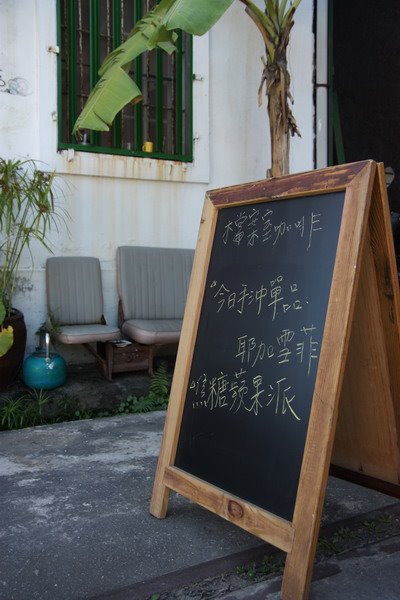 檔案室咖啡
"今日手沖單品.
耶加雪菲
"焦糖蘋果派